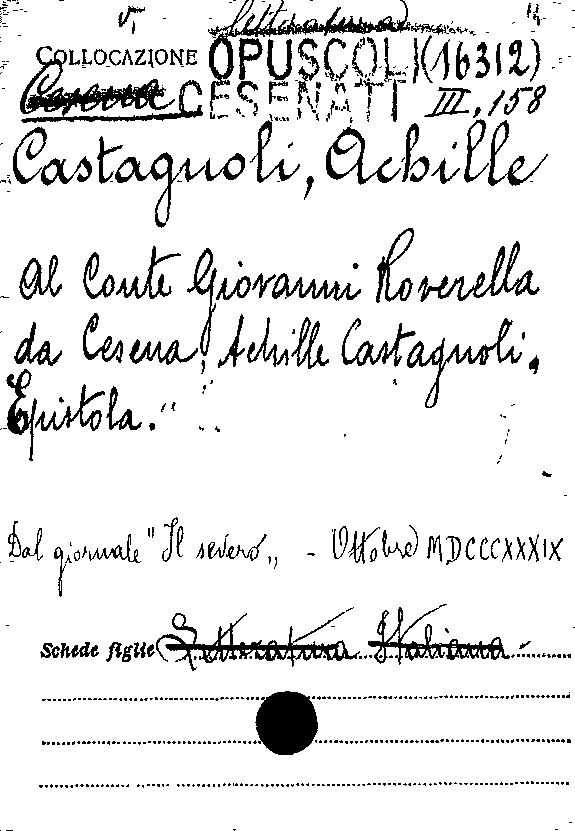 v. letteratura
COLLOCAZIONE OPUSCOLI (16312)
Cesena CESENATI III, 158
Castagnoli, Achille
Al Conte Giovanni Roverella
da Cesena, Achille Castagnoli.
Epistola."
Dal giornale "Il severo„ - Ottobre MDCCCXXXIX
Schede figlie Letteratura Italiana -